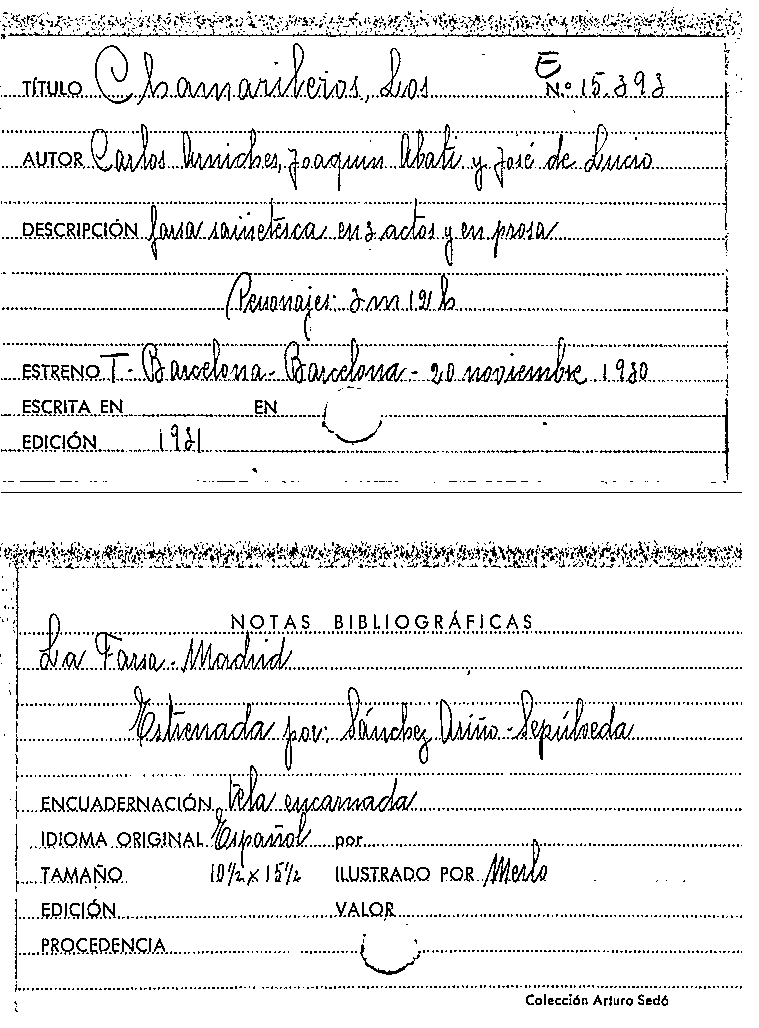 TÍTULO Chamarileros, Los E N.º 15.393
AUTOR Carlos Arniches, Joaquin Abati y José de Lucio
DESCRIPCIÓN farsa sainetesca en 3 actos y en prosa
Personajes: 3 m 19 h
ESTRENO T - Barcelona - Barcelona - 20 noviembre 1930
ESCRITA EN EN
EDICIÓN 1931
NOTAS BIBLIOGRÁFICAS
La Farsa - Madrid
Estrenada por: Sánchez Ariño - Sepúlveda
ENCUADERNACIÓN tela encarnada
IDIOMA ORIGINAL Español por
TAMAÑO 10½ x 15½ ILUSTRADO POR Merlo
EDICIÓN VALOR
PROCEDENCIA
Colección Arturo Sedó